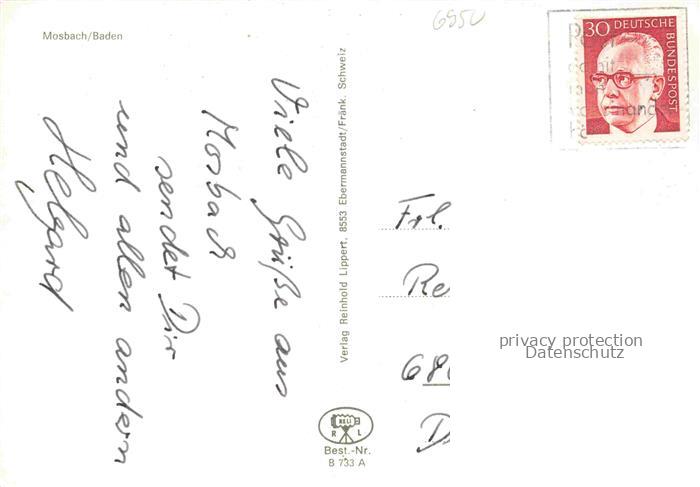 6950
Mosbach/Baden
Viele Grüße aus
Mosbach
sendet Dir
und allen andern
Helgard
Verlag Reinhold Lippert, 8553 Ebermannstadt/Fränk. Schweiz
RELI
R L
Best.-Nr.
B 733 A
30 DEUTSCHE
BUNDESPOST
Frl.
Re
68
D
privacy protection
Datenschutz